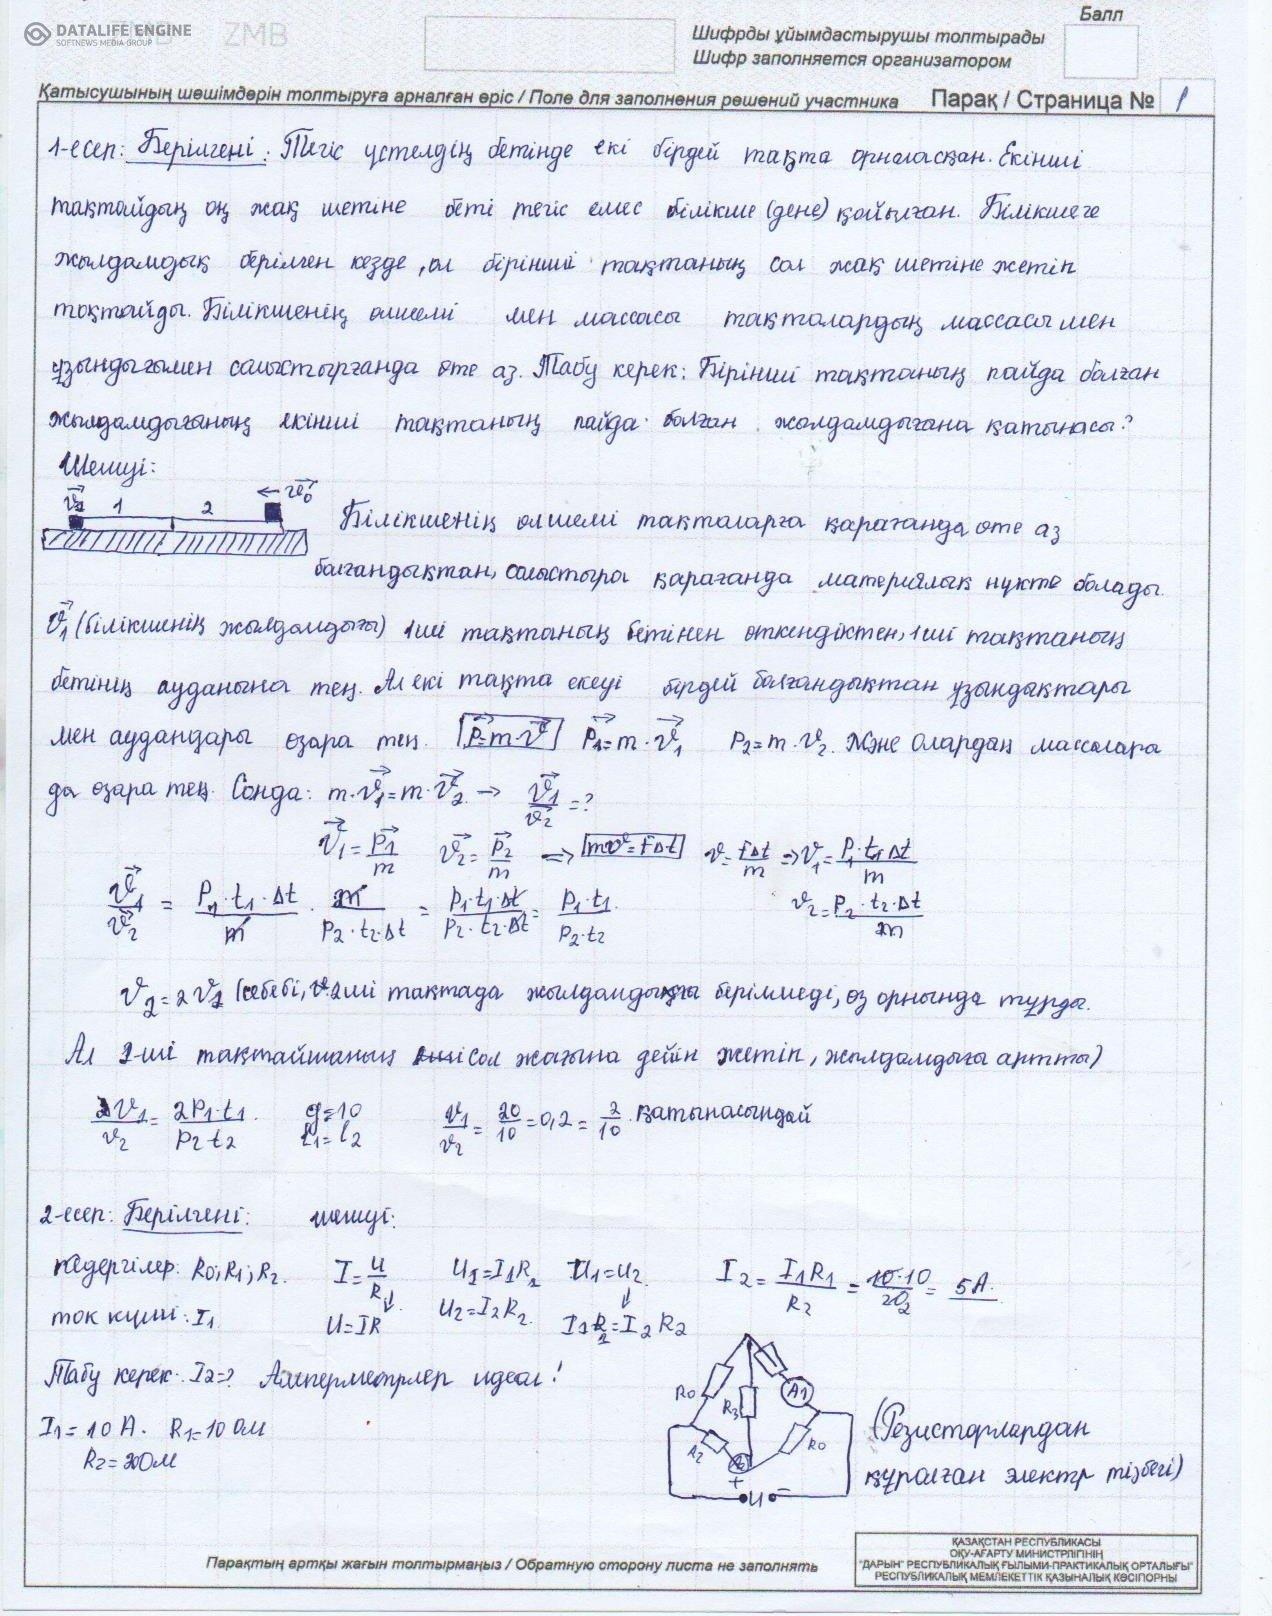 DATALIFE ENGINE
SOFTNEWS MEDIA GROUP
ZMB ZMB
Балл
Шифрды ұйымдастырушы толтырады
Шифр заполняется организатором
Қатысушының шешімдерін толтыруға арналған өріс / Поле для заполнения решений участника Парақ / Страница № 1
1-есеп: Берілгені: Тегіс үстелдің бетінде екі бірдей тақта орналасқан. Екінші
тақтайдың оң жақ шетіне беті тегіс емес білікше (дене) қойылған. Білікшеге
жылдамдық берілген кезде, ол бірінші тақтаның сол жақ шетіне жетіп
тоқтайды. Білікшенің өлшемі мен массасы тақталардың массасы мен
ұзындығымен салыстырғанда өте аз. Табу керек: Бірінші тақтаның пайда болған
жылдамдығының екінші тақтаның пайда болған жылдамдығына қатынасы?
Шешуі:
1 2 v⃗₀
Білікшенің өлшемі тақталарға қарағанда өте аз
болғандықтан, салыстыра қарағанда материялық нүкте болады.
v⃗₁ (білікшенің жылдамдығы) 1ші тақтаның бетінен өткендіктен, 1ші тақтаның
бетінің ауданына тең. Ал екі тақта екеуі бірдей болғандықтан ұзындықтары
мен аудандары өзара тең. p⃗=m·v⃗ p⃗₁=m·v⃗₁ p₂=m·v₂. Және олардың массалары
да өзара тең. Сонда: m·v⃗₁=m·v⃗₂ → v⃗₁/v⃗₂=?
v⃗₁=p⃗₁/m v⃗₂=p⃗₂/m ⇒ mv=FΔt v=FΔt/m ⇒ v₁=P₁·t₁·Δt/m
v⃗₁/v⃗₂ = P₁·t₁·Δt/m · m/P₂·t₂·Δt = P₁·t₁·Δt/P₂·t₂·Δt = P₁·t₁/P₂·t₂ v₂=P₂·t₂·Δt/m
v₂=2v₁ (себебі, 2ші тақтада жылдамдығы берілмеді, өз орнында тұрды.
Ал 1-ші тақтайшаның сол жағына дейін жетіп, жылдамдығы артты)
2v₁/v₂=2P₁·t₁/P₂·t₂ g=10 l₁=l₂ v₁/v₂=20/10=0,2=2/10 қатынасындай
2-есеп: Берілгені: шешуі:
Кедергілер: R₀; R₁; R₂. I=U/R U₁=I₁R₁ U₁=U₂. I₂=I₁R₁/R₂=10·10/20=5A.
ток күші: I₁ U=IR U₂=I₂R₂. I₁R₁=I₂R₂
Табу керек: I₂=? Амперметрлер идеал!
I₁=10 A. R₁=10 Ом
R₂=20Ом
R₀ R₃ A₁
R₂ A₂ R₀
+ U −
(Резисторлардан
құралған электр тізбегі)
Парақтың артқы жағын толтырмаңыз / Обратную сторону листа не заполнять
ҚАЗАҚСТАН РЕСПУБЛИКАСЫ
ОҚУ-АҒАРТУ МИНИСТРЛІГІНІҢ
"ДАРЫН" РЕСПУБЛИКАЛЫҚ ҒЫЛЫМИ-ПРАКТИКАЛЫҚ ОРТАЛЫҒЫ"
РЕСПУБЛИКАЛЫҚ МЕМЛЕКЕТТІК ҚАЗЫНАЛЫҚ КӘСІПОРНЫ